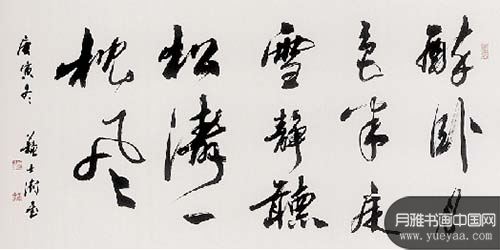 醉卧月
色半床
雪靜聽
松濤一
枕风
庚寅冬
蘇士澍書
月雅书画中国网
www.yueyaa.com